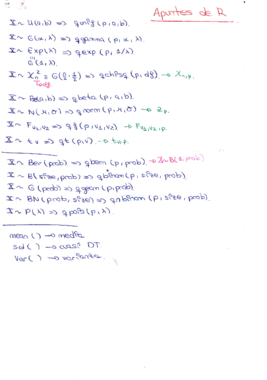 Apuntes de R
X ~ U(a,b) => qunif(p,a,b).
X ~ G(α,λ) => qgamma(p,α,λ).
X ~ Exp(λ) => qexp(p,1/λ)
G(1,λ).
X ~ χn² ≡ G(n/2 · 1/2) => qchisq(p,df) → χn,p.
X ~ Be(a,b) => qbeta(p,a,b).
X ~ N(μ,σ) => qnorm(p,μ,σ) → Zp.
X ~ Fν1,ν2 => qf(p,ν1,ν2) → Fν1,ν2,p.
X ~ tν => qt(p,ν) → tn,p.
X ~ Ber(prob) => qbern(p,prob) → X~B(1,prob)
X ~ B(size,prob) => qbinom(p,size,prob).
X ~ G(prob) => qgeom(p,prob)
X ~ BN(prob,size) => qnbinom(p,size,prob).
X ~ P(λ) => qpois(p,λ).
mean() → media
sd() → cuasi DT.
var() → varianza.